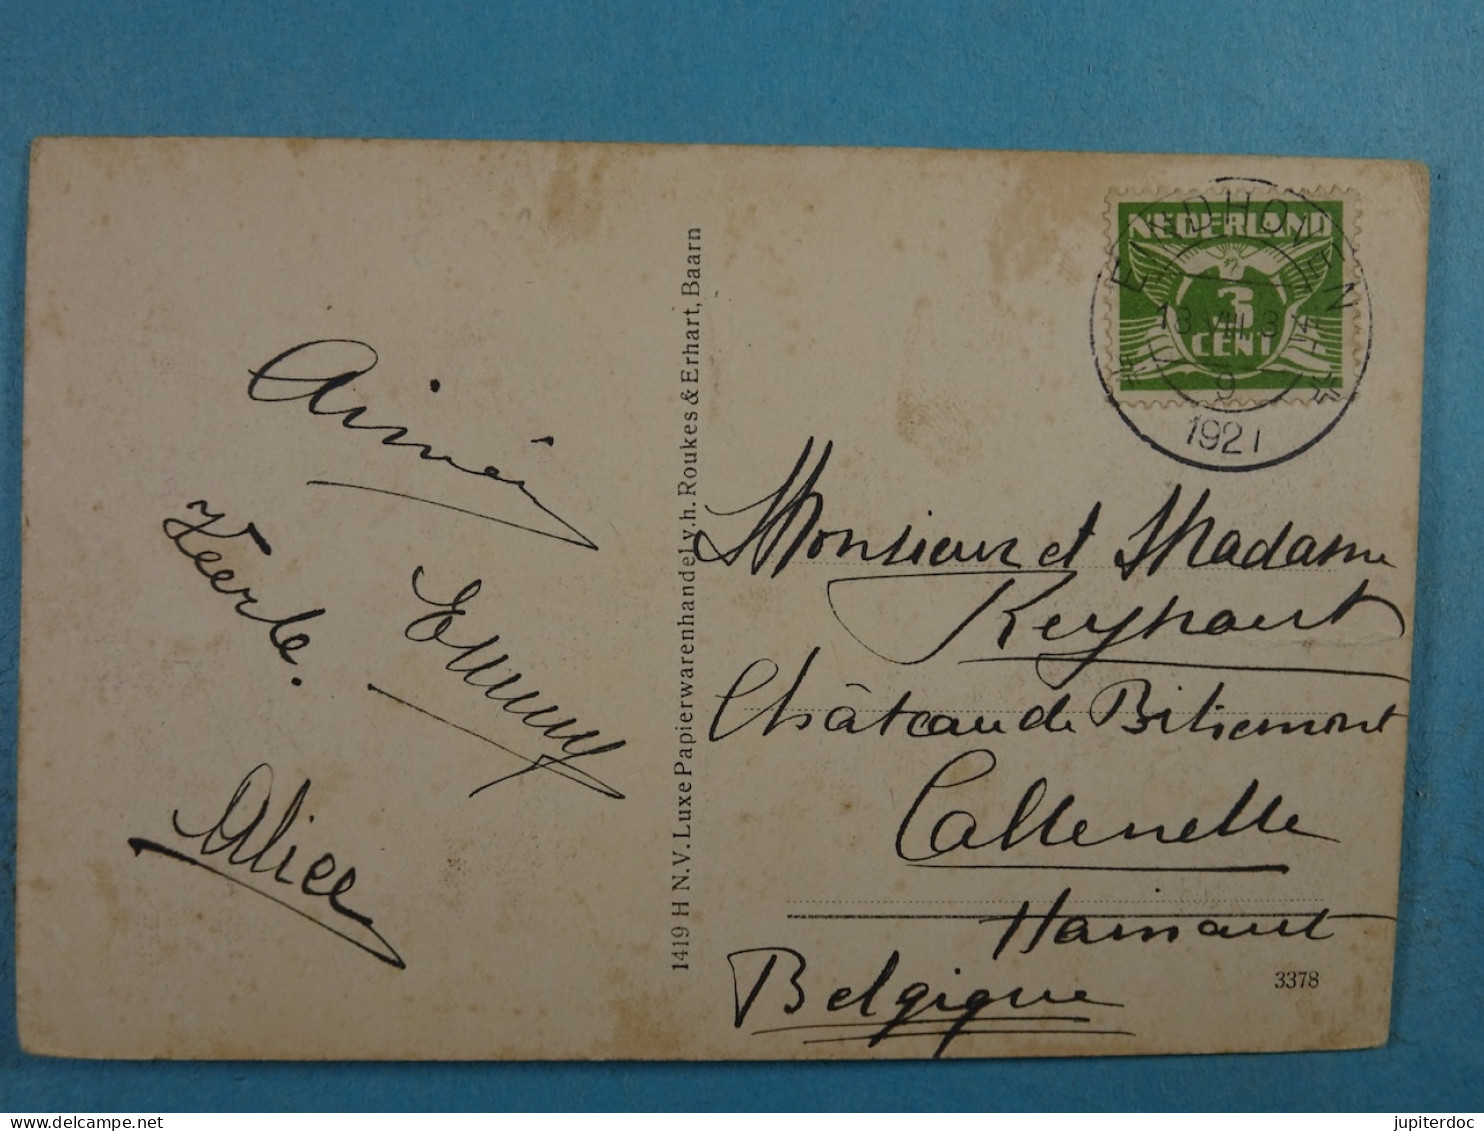 Aimée
Veerle.
Emmy
Alice
1419 H N.V. Luxe Papierwarenhandel v.h. Roukes & Erhart, Baarn
NEDERLAND
3
CENT
EINDHOVEN
13 VIII 3 4
9
1921
Monsieur et Madame
Château de
Callenelle
Hainaut
Belgique
3378
jupiterdoc